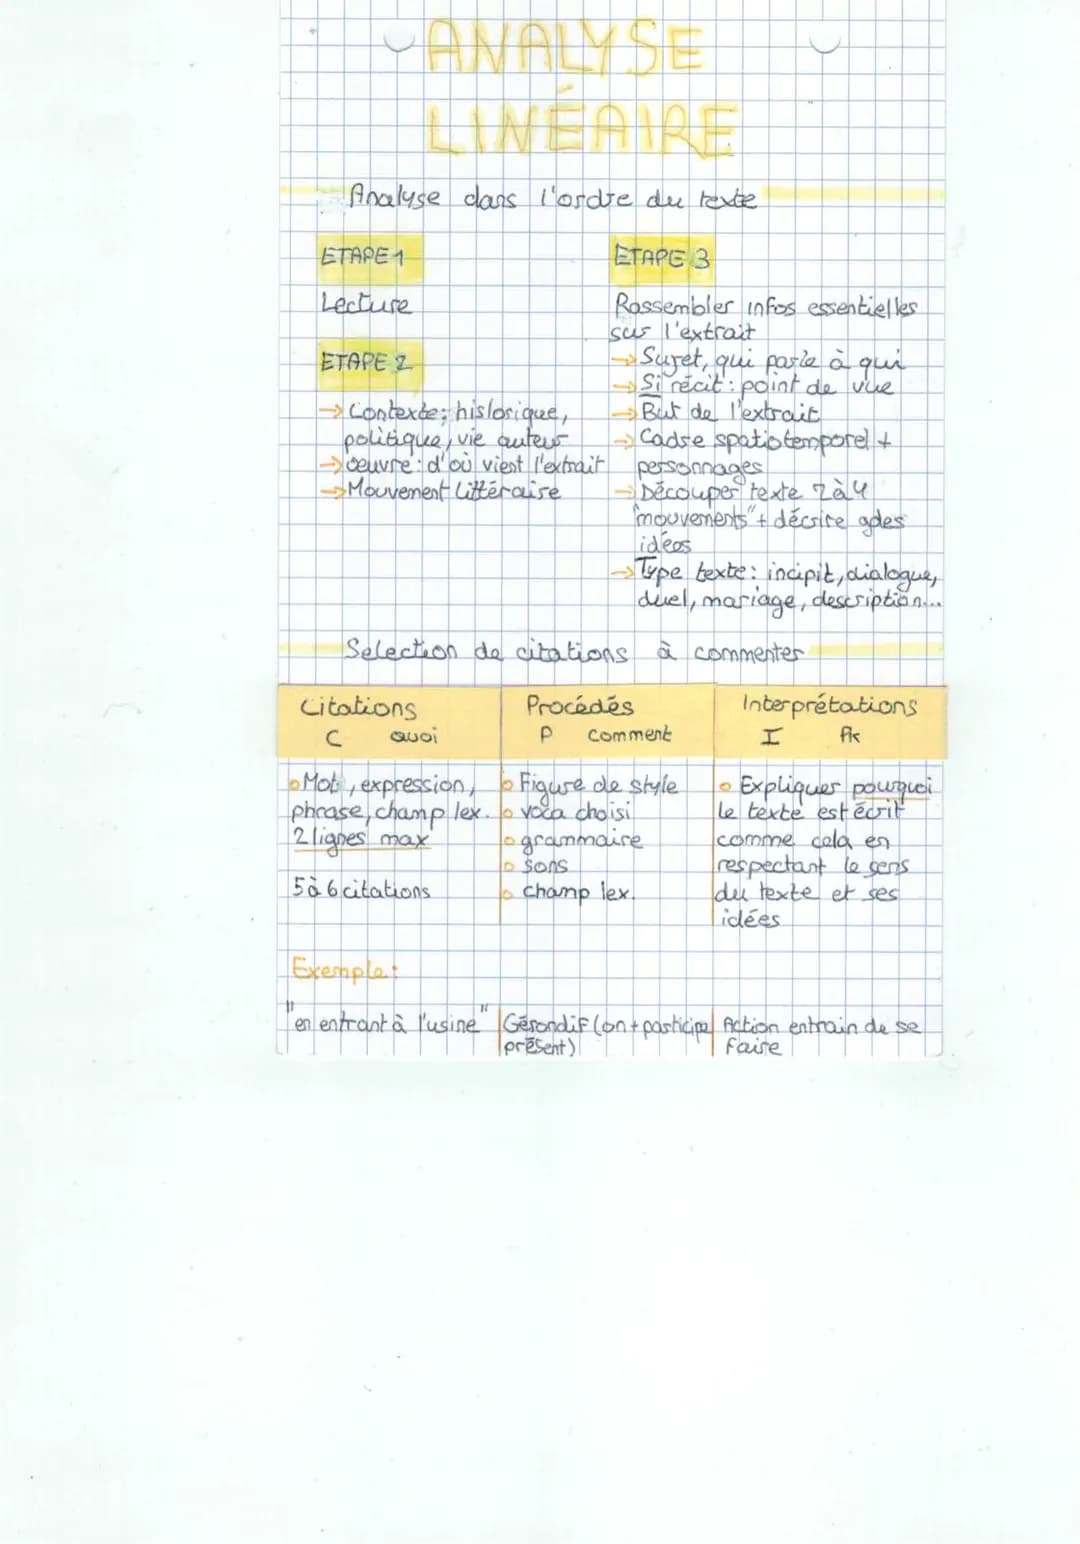 ANALYSE
LINÉAIRE
Analyse dans l'ordre du texte
ETAPE 1
Lecture
ETAPE 2
→ Contexte: historique,
politique, vie auteur
→ oeuvre: d'où vient l'extrait
→ Mouvement littéraire
ETAPE 3
Rassembler infos essentielles
sur l'extrait
→ Sujet, qui parle à qui
→ Si récit: point de vue
→ But de l'extrait
→ Cadre spatiotemporel +
personnages
→ Découper texte 2 à 4
"mouvements" + décrire gdes
idées
→ Type texte: incipit, dialogue,
duel, mariage, description...
Selection de citations à commenter
Citations
C quoi
Procédés
P comment
Interprétations
I Pk
o Mot, expression,
phrase, champ lex.
2 lignes max
5 à 6 citations
o Figure de style
o voca choisi
o grammaire
o sons
o champ lex.
o Expliquer pourquoi
le texte est écrit
comme cela en
respectant le sens
du texte et ses
idées
Exemple:
"en entrant à l'usine"
Gérondif (en + participe
présent)
Action entrain de se
faire